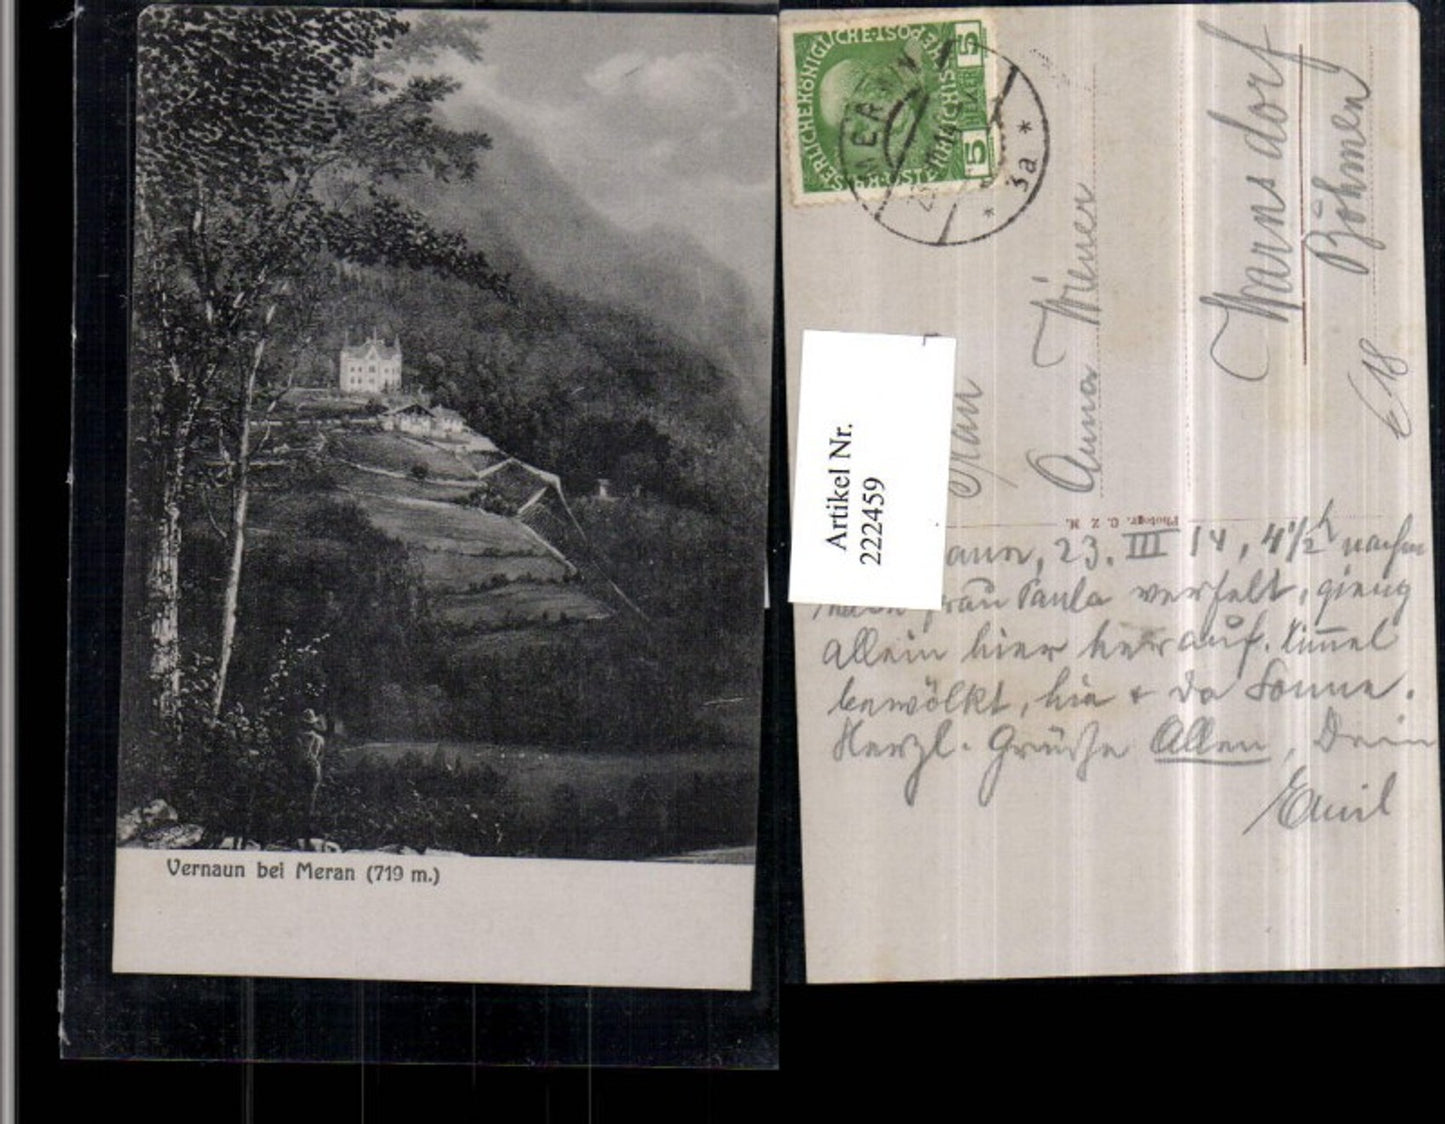 Vernaun bei Meran (719 m.)
KAISERLICHE KÖNIGLICHE ÖSTERREICHISCHE POST
5 HELLER 5
MERAN
* 3a *
Artikel Nr.
222459
Frau
Anna Wiener
Warnsdorf
Böhmen
Photogr. C. Z. M.
23. III 14, 4 1/2 h nachm
Frau Paula verfehlt, gieng
allein hier herauf. Himmel
bewölkt, hie + da Sonne.
Herzl. Grüße Allen, Dein
Emil